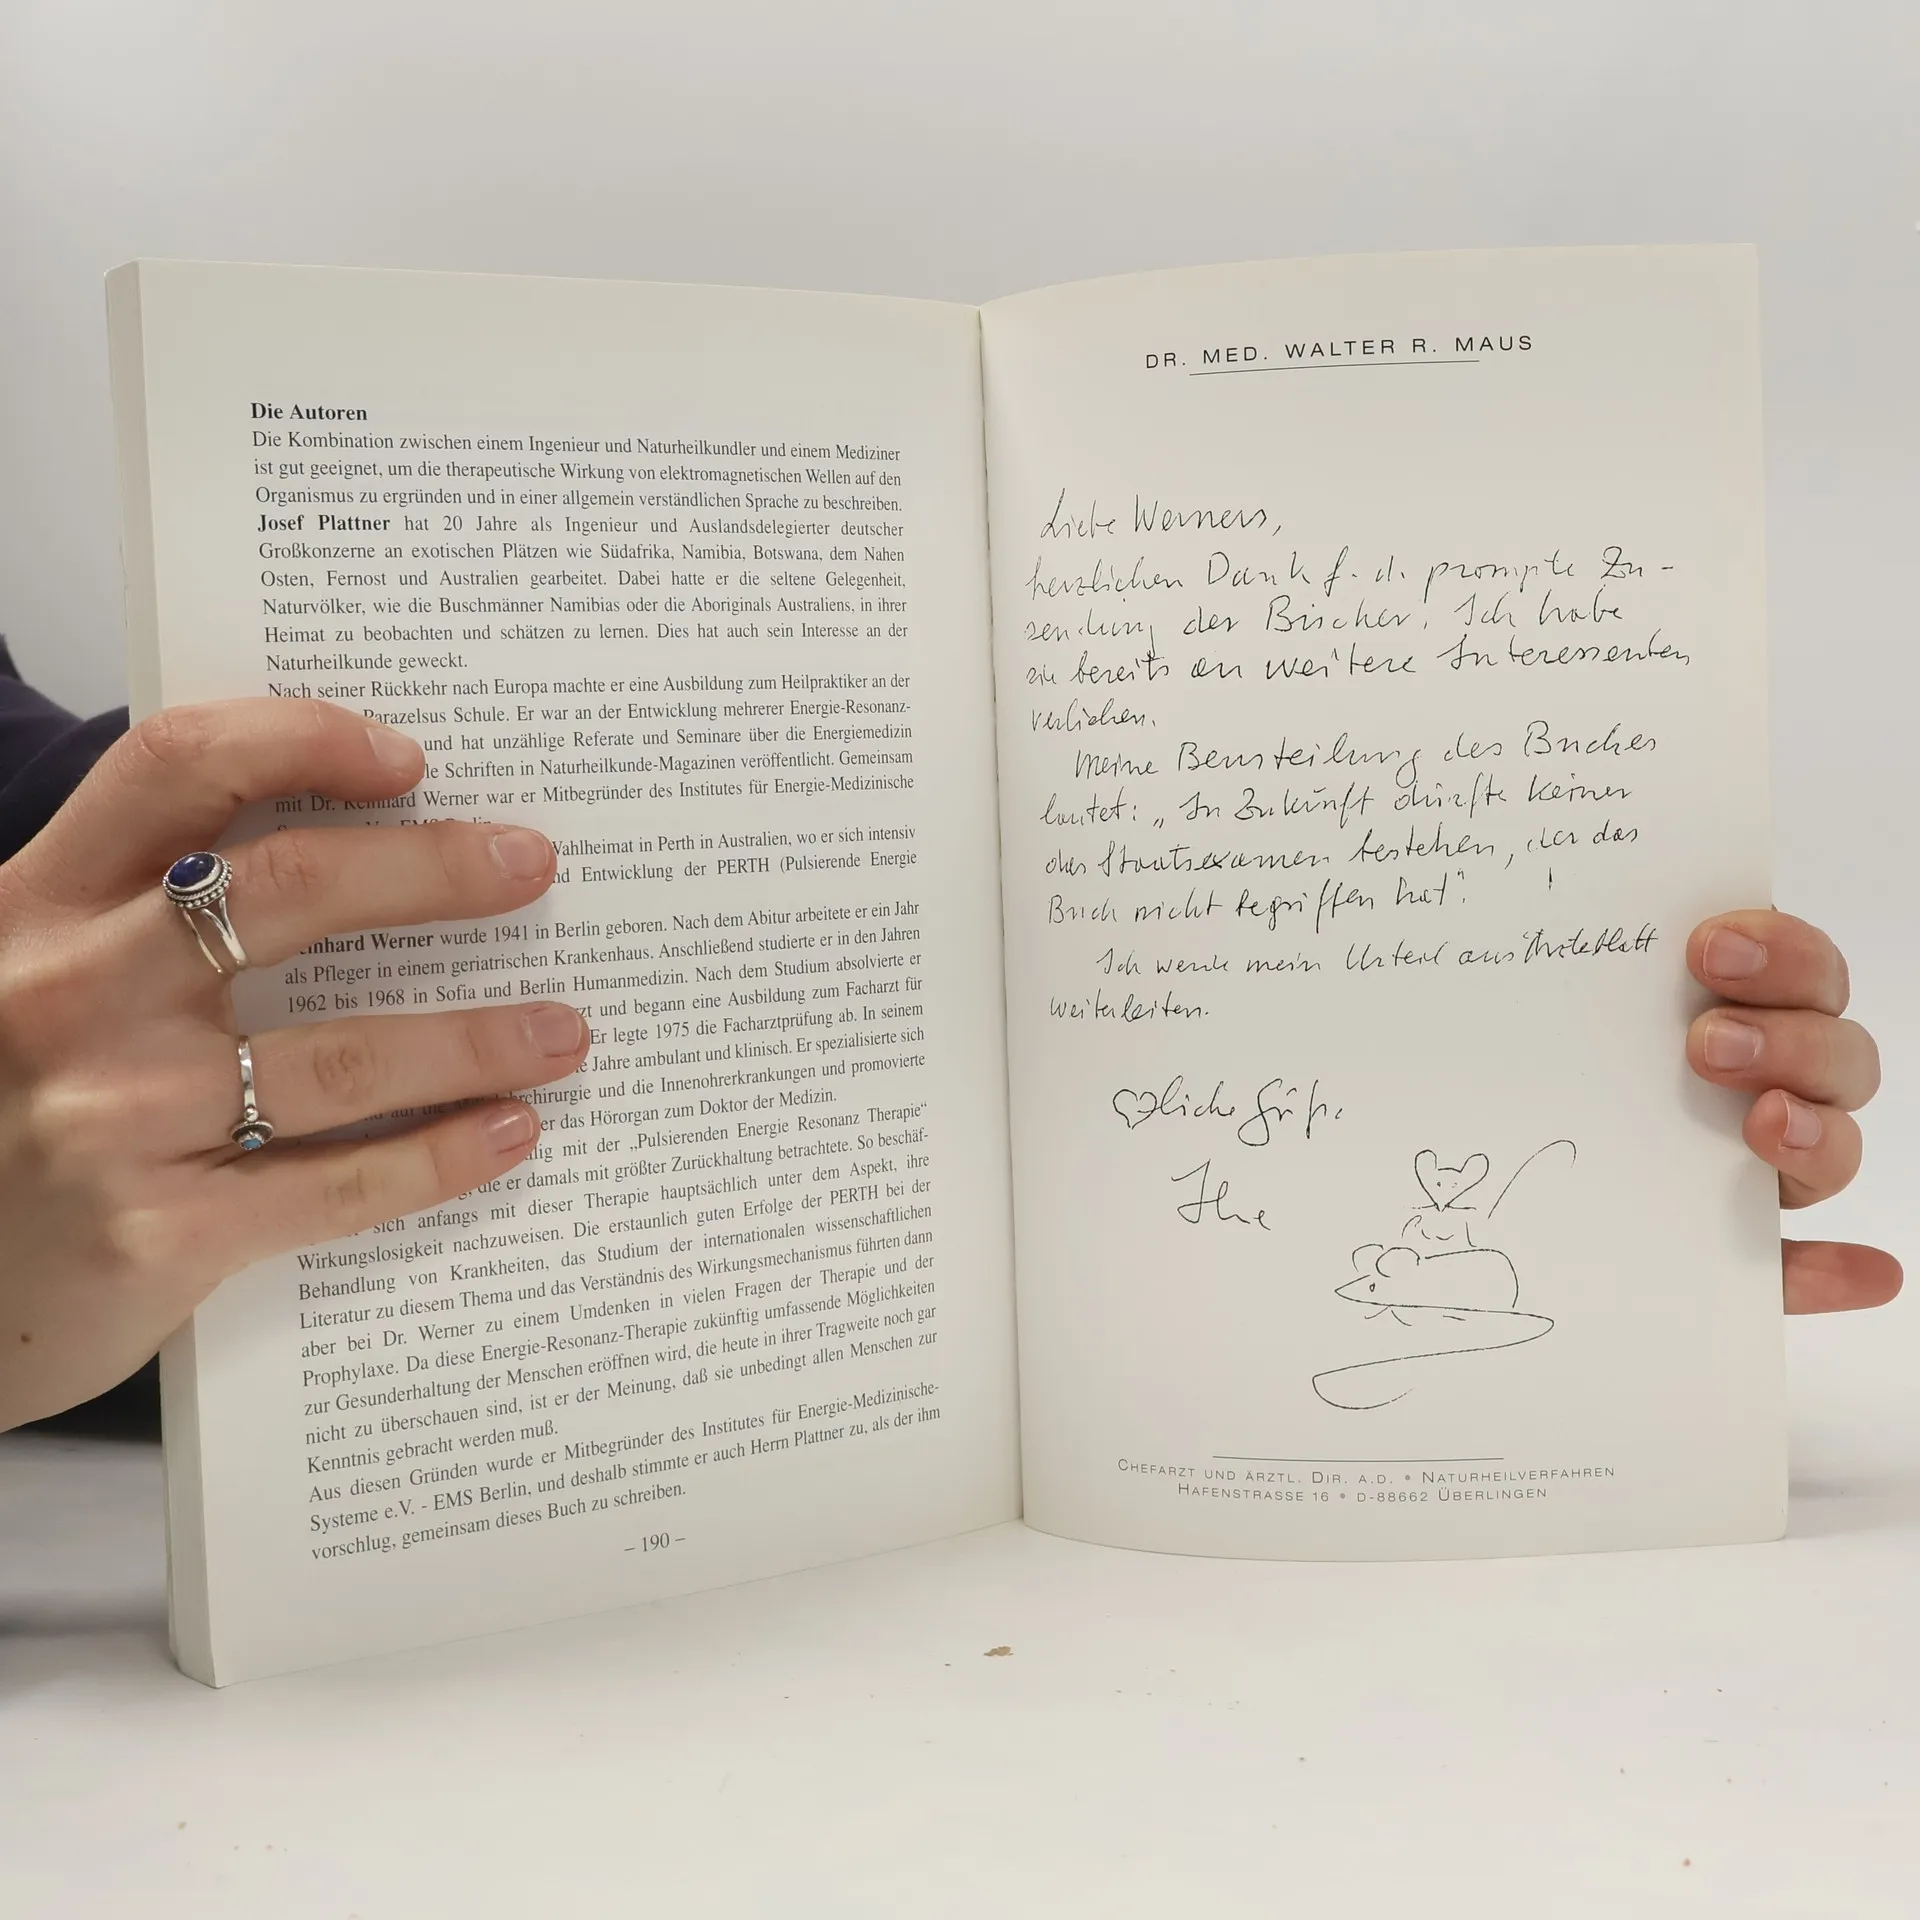 Die Autoren
Die Kombination zwischen einem Ingenieur und Naturheilkundler und einem Mediziner
ist gut geeignet, um die therapeutische Wirkung von elektromagnetischen Wellen auf den
Organismus zu ergründen und in einer allgemein verständlichen Sprache zu beschreiben.
Josef Plattner hat 20 Jahre als Ingenieur und Auslandsdelegierter deutscher
Großkonzerne an exotischen Plätzen wie Südafrika, Namibia, Botswana, dem Nahen
Osten, Fernost und Australien gearbeitet. Dabei hatte er die seltene Gelegenheit,
Naturvölker, wie die Buschmänner Namibias oder die Aboriginals Australiens, in ihrer
Heimat zu beobachten und schätzen zu lernen. Dies hat auch sein Interesse an der
Naturheilkunde geweckt.
Nach seiner Rückkehr nach Europa machte er eine Ausbildung zum Heilpraktiker an der
Parazelsus Schule. Er war an der Entwicklung mehrerer Energie-Resonanz-
und hat unzählige Referate und Seminare über die Energiemedizin
Schriften in Naturheilkunde-Magazinen veröffentlicht. Gemeinsam
mit Dr. Reinhard Werner war er Mitbegründer des Institutes für Energie-Medizinische
Wahlheimat in Perth in Australien, wo er sich intensiv
Entwicklung der PERTH (Pulsierende Energie
Werner wurde 1941 in Berlin geboren. Nach dem Abitur arbeitete er ein Jahr
als Pfleger in einem geriatrischen Krankenhaus. Anschließend studierte er in den Jahren
1962 bis 1968 in Sofia und Berlin Humanmedizin. Nach dem Studium absolvierte er
und begann eine Ausbildung zum Facharzt für
Er legte 1975 die Facharztprüfung ab. In seinem
Jahre ambulant und klinisch. Er spezialisierte sich
und die Innenohrerkrankungen und promovierte
das Hörorgan zum Doktor der Medizin.
mit der „Pulsierenden Energie Resonanz Therapie“
die er damals mit größter Zurückhaltung betrachtete. So beschäf-
sich anfangs mit dieser Therapie hauptsächlich unter dem Aspekt, ihre
Wirkungslosigkeit nachzuweisen. Die erstaunlich guten Erfolge der PERTH bei der
Behandlung von Krankheiten, das Studium der internationalen wissenschaftlichen
Literatur zu diesem Thema und das Verständnis des Wirkungsmechanismus führten dann
aber bei Dr. Werner zu einem Umdenken in vielen Fragen der Therapie und der
Prophylaxe. Da diese Energie-Resonanz-Therapie zukünftig umfassende Möglichkeiten
zur Gesunderhaltung der Menschen eröffnen wird, die heute in ihrer Tragweite noch gar
nicht zu überschauen sind, ist er der Meinung, daß sie unbedingt allen Menschen zur
Kenntnis gebracht werden muß.
Aus diesen Gründen wurde er Mitbegründer des Institutes für Energie-Medizinische-
Systeme e.V. - EMS Berlin, und deshalb stimmte er auch Herrn Plattner zu, als der ihm
vorschlug, gemeinsam dieses Buch zu schreiben.
– 190 –
DR. MED. WALTER R. MAUS
Liebe Werners,
herzlichen Dank f. d. prompte Zu-
sendung der Bücher. Ich habe
sie bereits an weitere Interessenten
verliehen.
Meine Beurteilung des Buches
lautet: „In Zukunft dürfte keiner
das Staatsexamen bestehen, der das
Buch nicht begriffen hat“!
Ich werde mein Urteil ans Ärzteblatt
weiterleiten.
liche Grüße
Ihre
CHEFARZT UND ÄRZTL. DIR. A.D. • NATURHEILVERFAHREN
HAFENSTRASSE 16 • D-88662 ÜBERLINGEN